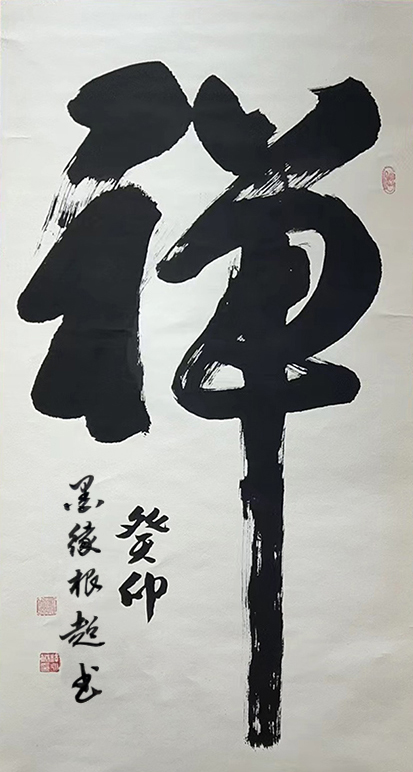 禅
癸卯
墨缘根超书